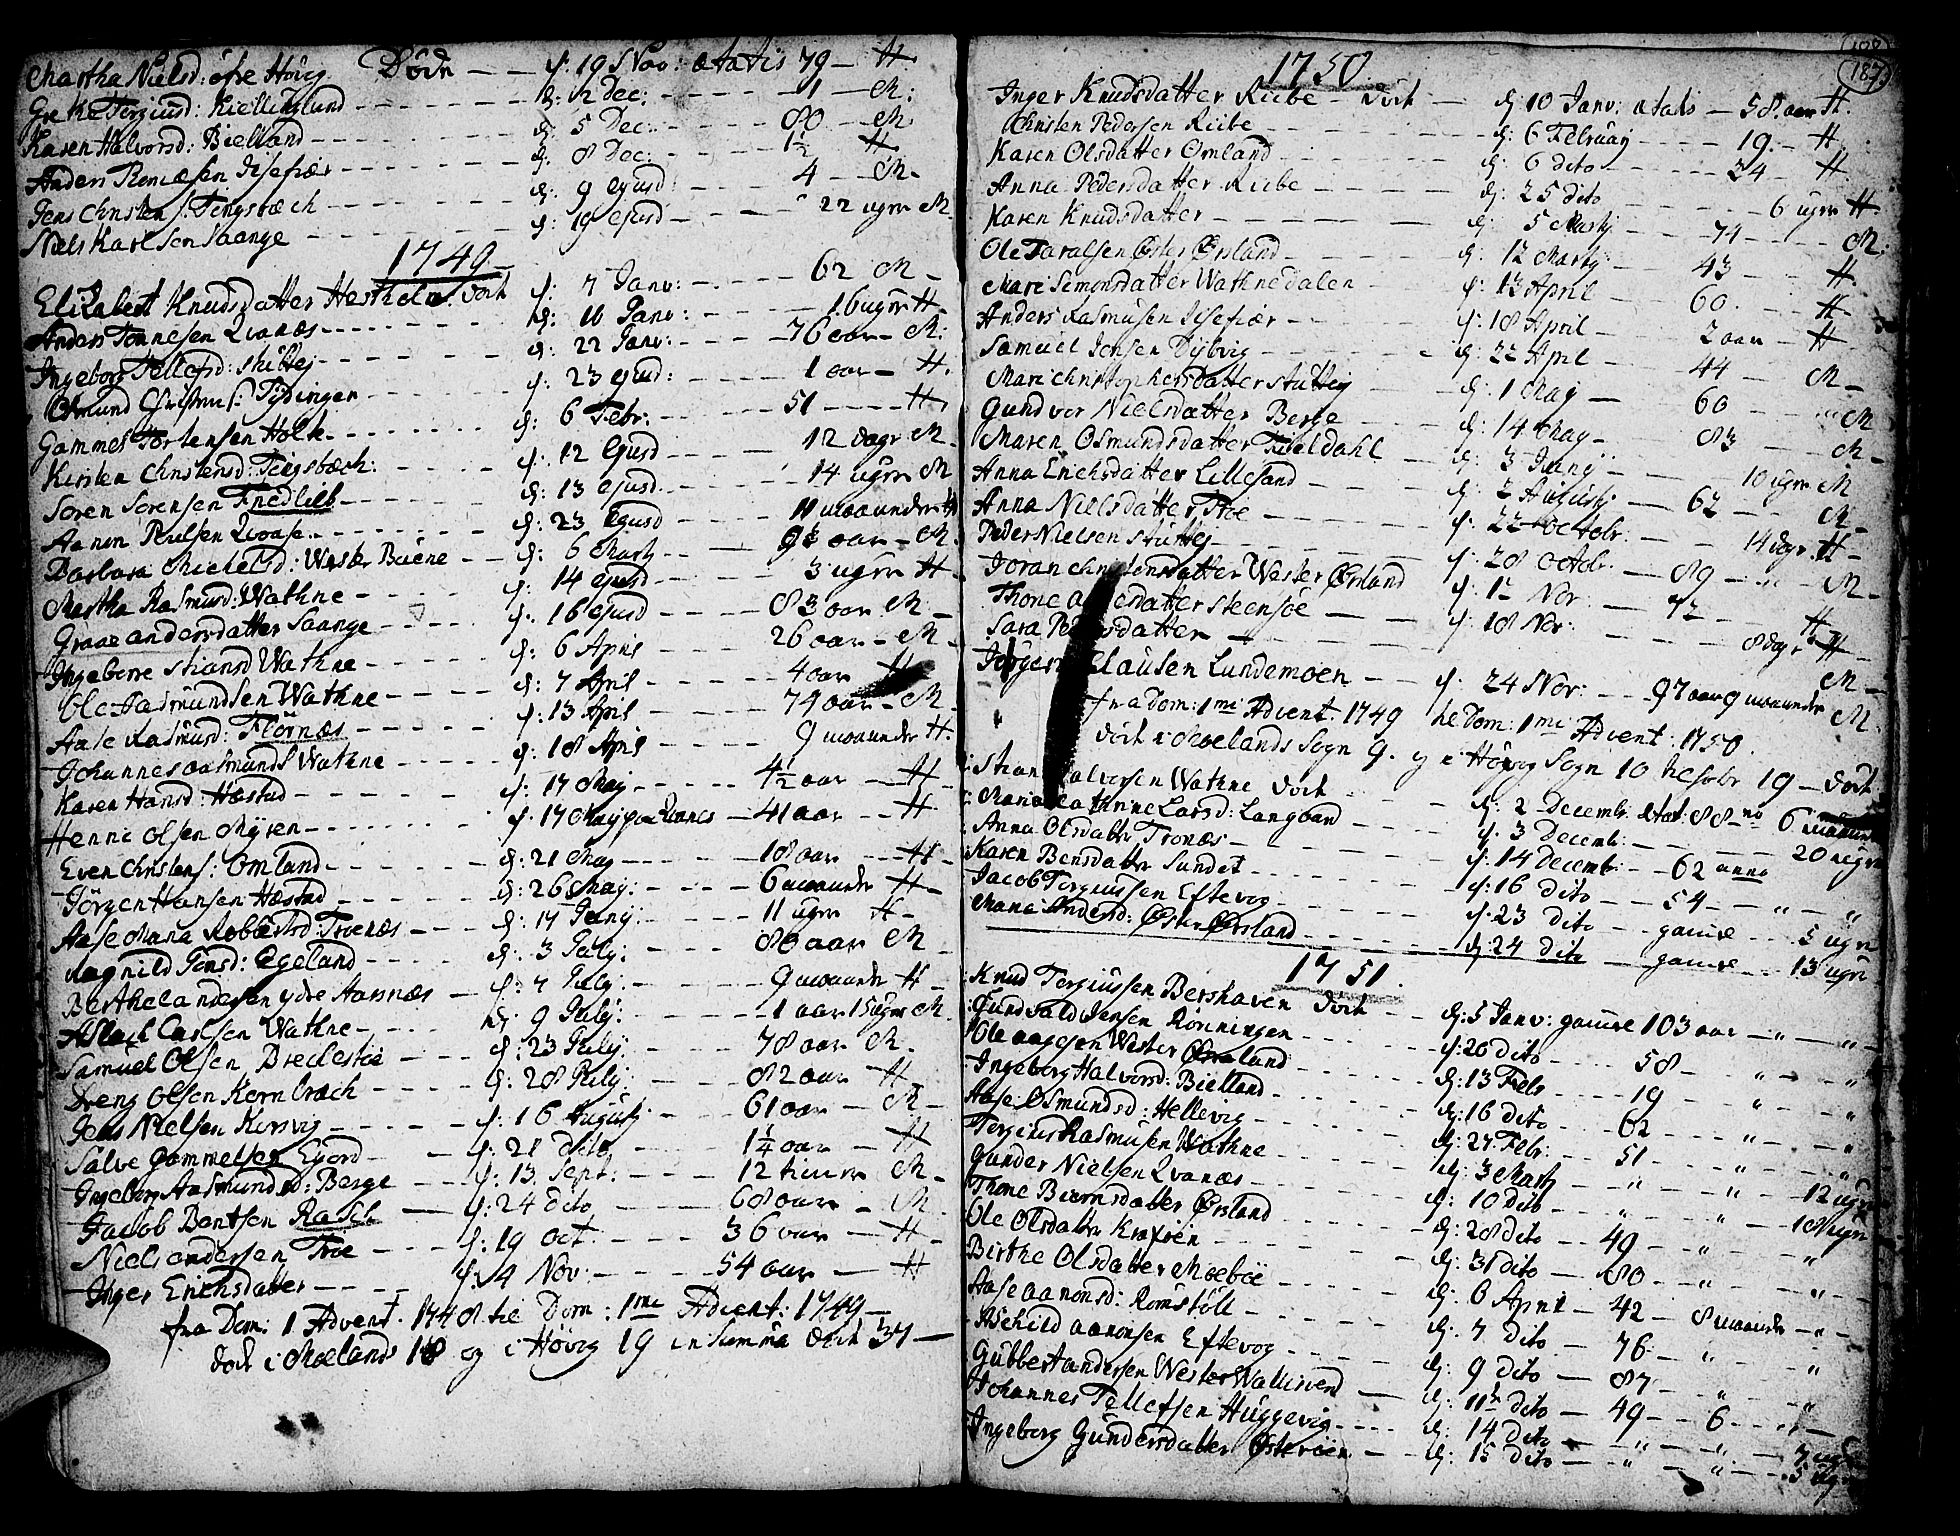 Døde
Martha Nielsd: øfre Høvig — d: 19 Nov: ætatis 79 — H
Grethe Tergiusd: Kiellinglund — d: 2 Dec: — 1 — M:
Karen Halvorsd: Bielland — d: 5 Dec: — 80 — M
Anders Thomæsen Isefiær — d: 8 Dec: — 1½ — H
Jens Christens: Tingsbæch — d: 9 ejusd: — 4 — M
Niels Karlsen Saange — d: 19 ejusd — 22 uger M
1749
Elizabett Knudsdatter død — d: 7 Janv: — 62 M
Anders Tønnesen Qvanæs — d: 10 Janv: — 16 uger H
Ingeborg Tellefsd: — d: 22 Janv: — 76 aar — M:
Osmund Tydingen — d: 23 ejusd: — 1 aar — H.
Gammel Torstensen Holte — d: 6 Febr: — 51 — H
Kirsten Christensd: Tingsbæch: — d: 12 Ejusd — 12 dage M
Soren Sørensen Fredlieb — d: 13 ejusd — 14 uger M
Aanon Poulsen — d: 23 Ejusd — 11 maaneder H
Barbara Michelsd: — d: 6 Marty — aar — M
Martha Rasmusd: Wathne — d: 14 ejusd — 3 uger H
andersdatter Saange — d: 16 ejusd — 83 aar M
Stiansd Wathne — d: 6 April — 26 aar — M
Ole Aasmundsen Wathne — d: 7 April — 4 aar H
Aase Rasmusd: Flørnæs — d: 13 April — 74 aar — M
Johannes aasmunds Wathne — d: 18 April — 9 maaneder H.
Karen Hansd: Hæstad — d: 17 May — 4½ aar — H
Henric Olsen Myren — d: 17 May — 41 aar — H
Even Christens: Omland — d: 21 May — 18 aar — H
Jörgen Hansen Hæstad — d: 26 May: — 6 maaneder H
Aase Maria Robbertsd: Tronæs — d: 17 Junÿ: — 11 uger H
Ragnild Jensd: Egeland — d: 3 July: — 80 aar M
Berthel andersen ydre Aarsnæs — d: 7 July: — 9 maaneder H
Aslach Carlsen Wathne — d: 9 July: — 1 aar 15 uger M
Samuel Olsen Bredestøe — d: 23 July: — 78 aar M
Dreng Olsen Kornbræch — d: 28 July: — 82 aar H
Jens Nielsen Korsvig — d: 16 Augusty — 61 aar — M
Salve Gammelsen Egord — d: 21 dito — 1¼ aar — H
Ingeborg Aasmundsd: Berge — d: 13. Sept: — 12 timer M
Jacob Bentsen Rasch — d: 24 dito — 68 aar — M
Niels andersen Troe — d: 19 oct — 36 aar — H
Inger Erichsdatter — d: 4 Nov: — 54 aar — H
fra Dom: 1 Advent. 1748 til Dom: 1me Advent: 1749 —
død i Moelands 18 og i Høvig 19 in Summa død 37 —
187
1750
Inger Knudsdatter Riibe — død — d: 10 Janv: ætatis — 58. aar H.
Christen Pedersen Riibe — d: 6 February — 19. — H
Karen Olsdatter Omland — d: 6 dito — 24 — H
Anna Pedersdatter Riibe — d: 25 dito — 6 uger H.
Karen Knudsdatter — d: 5 Marty — 74 — M:
Ole Taralsen Øster Ørsland — d: 12 Marty — 43 — H
Mari Simonsdatter Wathnedalen — d: 13 April — 60 — H
Anders Rasmusen Isefiær — d: 18 April — 2 aar — H
Samuel Jensen Dÿbvig — d: 22 April — 44 — M
Mari Christophersdatter — d: 1 May — 60 — M
Gundvor Nielsdatter Berge — d: 14 May — 83 — M
Maren Osmundsdatter — d: 3 Junÿ — 10 uger M
Anna Erichsdatter Lillesand — d: 2 Augusty — 62 — M
Anna Nielsdatter Troe — d: 22 octobr: — 14 dage. H
Peder Nielsen — d: 28 octobr. — 89 — M
Joran Christensdatter Wester Ørsland — d: 12 Nov: — 72 — H
Thone Steensøe — d: 18 Nov: — 8 dage H
Sara Pedersdatter
Jörgen Clausen Lundemoen — d: 24 Nov: — 97 aar 9 maaneder M
fra Dom: 1me Advent: 1749 til Dom: 1me Advent: 1750.
død i Moelands Sogn 9. og i Høvig Sogn 10 tilsamler 19 — død.
Stian Halvorsen Wathne død — d: 2 Decembr. ætat: 88 — 6 maaneder
Maria Cathrine Larsd: Langband — d: 3 Decemb: — 20 uger
Anna Olsdattr Tronæs — d: 14 Decemb: — 62 anno
Karen Bensdattr Sundet — d: 16 dito — 54 — " — "
Jacob Tergiussen Eftevog — d: 23 dito — gamle — 5 uger
Mari Andersd: Øster Ørsland — d: 24 dito — gamle — 13 uger
1751.
Knud Tergiussen Bershaven død — d: 5 Janv: gamle 103 aar — " — "
Gundvald Jensen Rønningen — d: 20 dito — 58 — " — "
Ole aagesen Wester — d: 13 Feb — 19 — " — "
Ingeborg Halvorsd: Bielland — d: 16 dito — 62 — " — "
Aase Osmundsd: Hellevig — d: 27 Febr: — 51 — " — "
Tergius Rasmusen Wathne — d: 3 Marty — " — " — 12 uger
Gunder Nielsen Qvanæs — d: 10 dito — " — " — 10 uger
Thone Biørnsdatter Ørsland — d: 28 dito — 49 — " — "
Ole Olsdattr — d: 31 dito — 80 — " — "
Birthe Olsdatter Moebøe — d: 6 April — 42 — 8 maaneder — "
Aase aanonsd: Romstöll — d: 7 dito — 76. — " — "
Aschild aanonsen Eftevog — d: 9 dito — 87 — " — "
Gubbert andersen Wester Wallisverd — d: 11te dito — 49 — 6 — "
Johannes Tellefsen Huggevig — d: 14 dito — " — " — 7 uger
Ingeborg Gundersdatter Østerøen — d: 15 dito — " — " — 5 uger